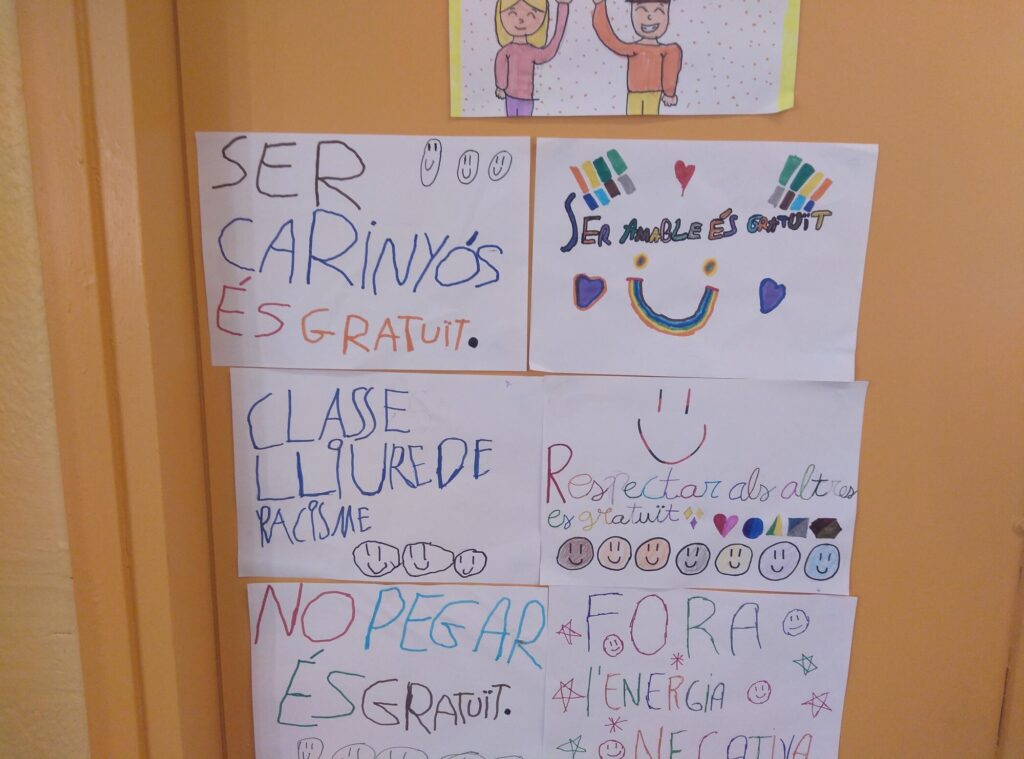 SER
CARiNYÓS
ÉS GRATUÏT.
SER AMABLE ÉS GRATUÏT
CLASSE
LLIURE DE
RACISME
Respectar als altres
es gratuït
NO PEGAR
ÉS GRATUÏT.
FORA
l'ENERGIA
NEGATIVA